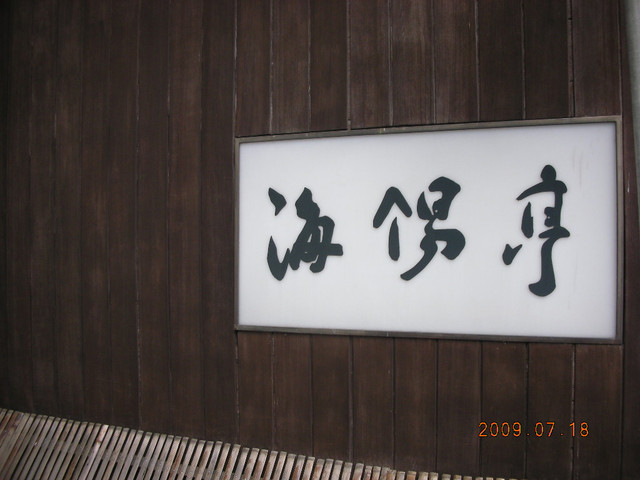 海陽亭
2009.07.18